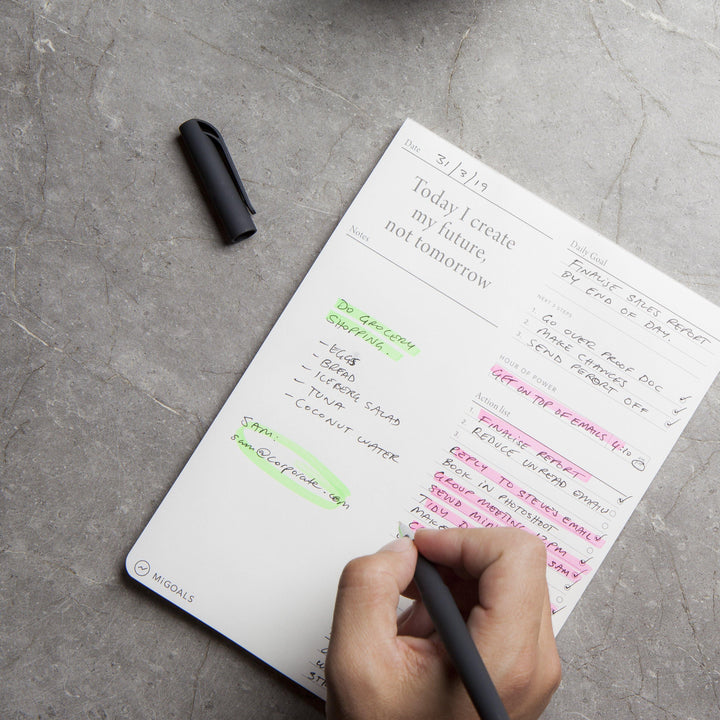 Date
31/3/19
Today I create
my future,
not tomorrow
Notes
DO GROCERY
SHOPPING.
- EGGS
- BREAD
- ICEBERG SALAD
- TUNA
- COCONUT WATER
SAM:
sam@corporate.com
MIGOALS
Daily Goal
FINALISE SALES REPORT
BY END OF DAY.
NEXT 3 STEPS
1. GO OVER PROOF DOC
2. MAKE CHANGES
3. SEND REPORT OFF
HOUR OF POWER
GET ON TOP OF EMAILS 4:10
Action list
1. FINALISE REPORT
2. REDUCE UNREAD EMAILS
3.
REPLY TO STEVE'S EMAIL
BOOK IN PHOTOSHOOT
GROUP MEETING 12PM
SEND SAM
TIDY
MAKE